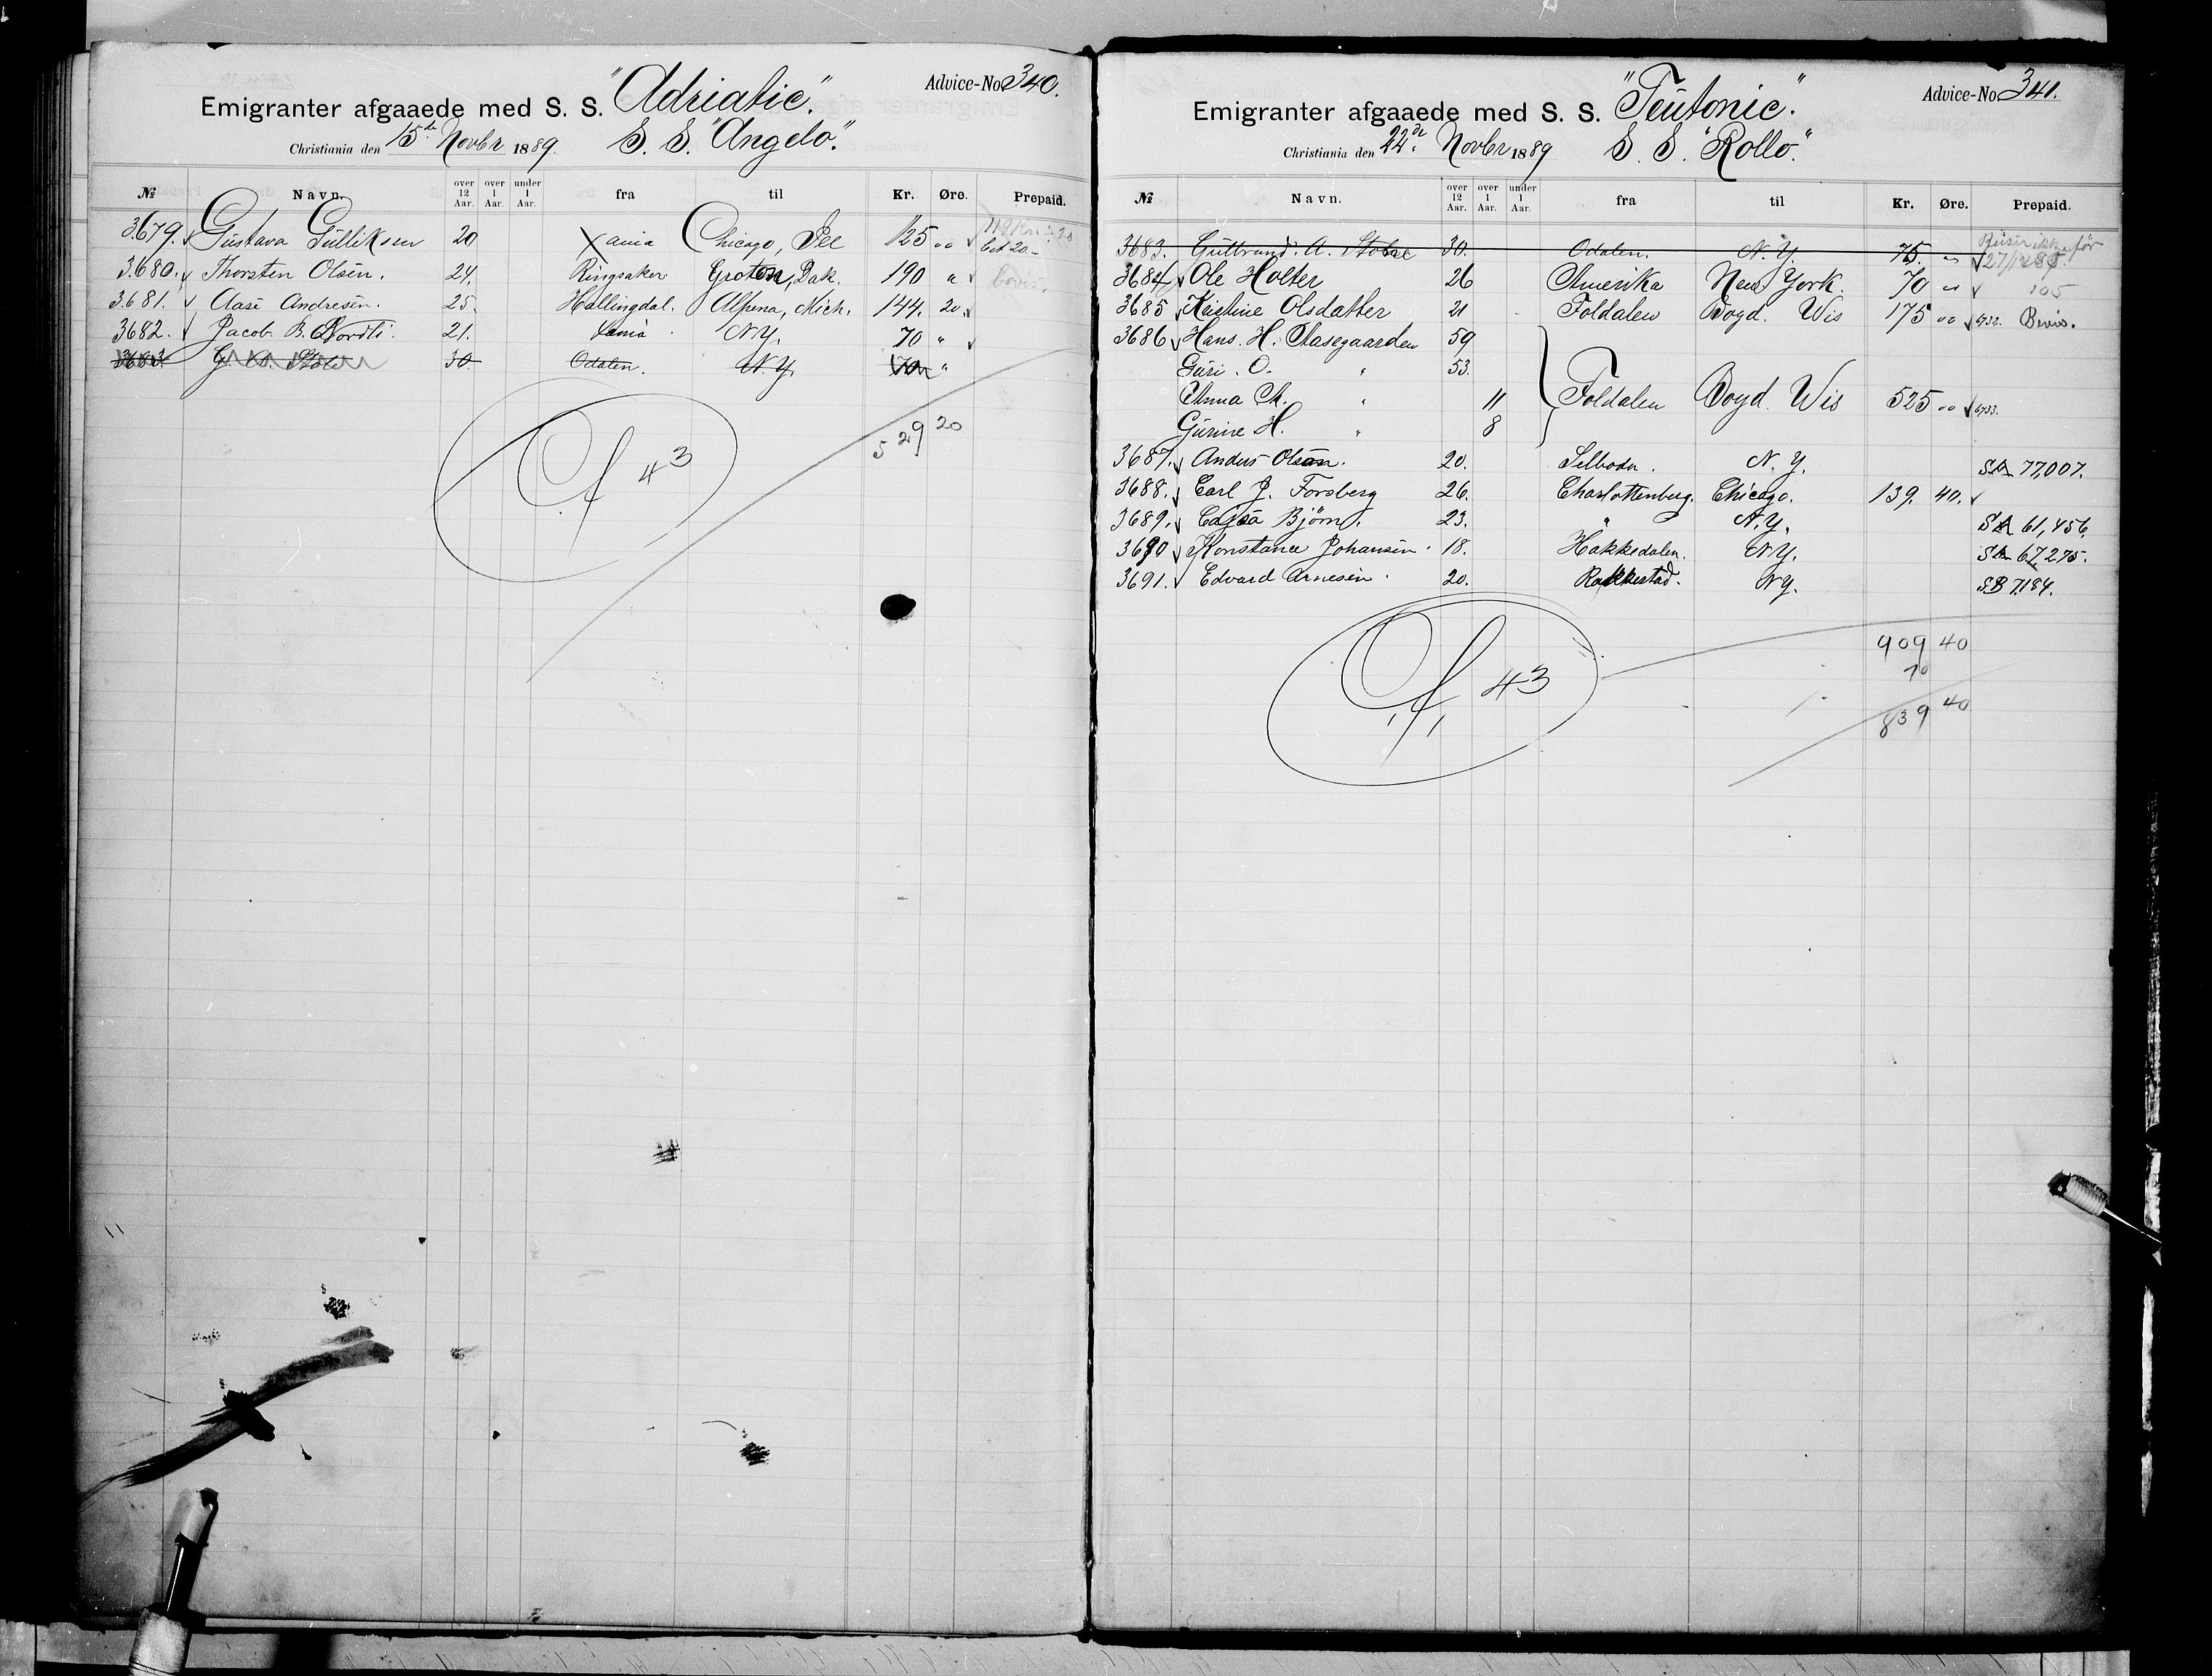 Advice-No 340.
Emigranter afgaaede med S. S. "Adriatic".
Christiania den 15de Novbr 1889. S. S. "Angelo".
№ Navn. over 12 Aar. over 1 Aar. under 1 Aar. fra til Kr. Øre. Prepaid.
3679. Gustava Gulliksen 20 Xania Chicago, Ill 125 00 bet 20.-
3680. Thorsten Olsen. 24. Ringsaker Groton, Dak. 190 " bevis.
3681. Aase Andresen. 25. Hallingdal. Alpena, Mich. 144. 20.
3682. Jacob B. Nordli. 21. Xania N.Y. 70 "
3683. 30. Odalen. N.Y. 70 "
529 20
43
Advice-No 341.
Emigranter afgaaede med S. S. "Teutonic".
Christiania den 22de Novbr 1889 S. S. "Rollo."
№ Navn. over 12 Aar. over 1 Aar. under 1 Aar. fra til Kr. Øre. Prepaid.
3683. Gulbrand. A. 30. Odalen. N.Y. 75. " Reiser ikke før
3684 Ole Holter 26 Amerika New York. 70 " 105
3685 Kristine Olsdatter 21 Foldalen Boyd. Wis 175 00 6732. Bevis.
3686 Hans. H. Aasegaarden 59
Guri. O. " 53.
Anna " 11 Foldalen Boyd. Wis 525 00 6733.
Gurine H. " 8
3687. Anders Olsen. 20. Selboda. N.Y. SA 77,007.
3688. Carl J. Forsberg 26. Charlottenberg. Chicago. 139. 40.
3689. Cajsa Björn. 23. " N.Y. SA 61,456.
3690 Konstance Johansen. 18. Hakkedalen. N.Y. SA 67,275.
3691. Edvard Arnesen. 20. Rakkestad. N.Y. SB 7,184.
909 40
70
839 40
43